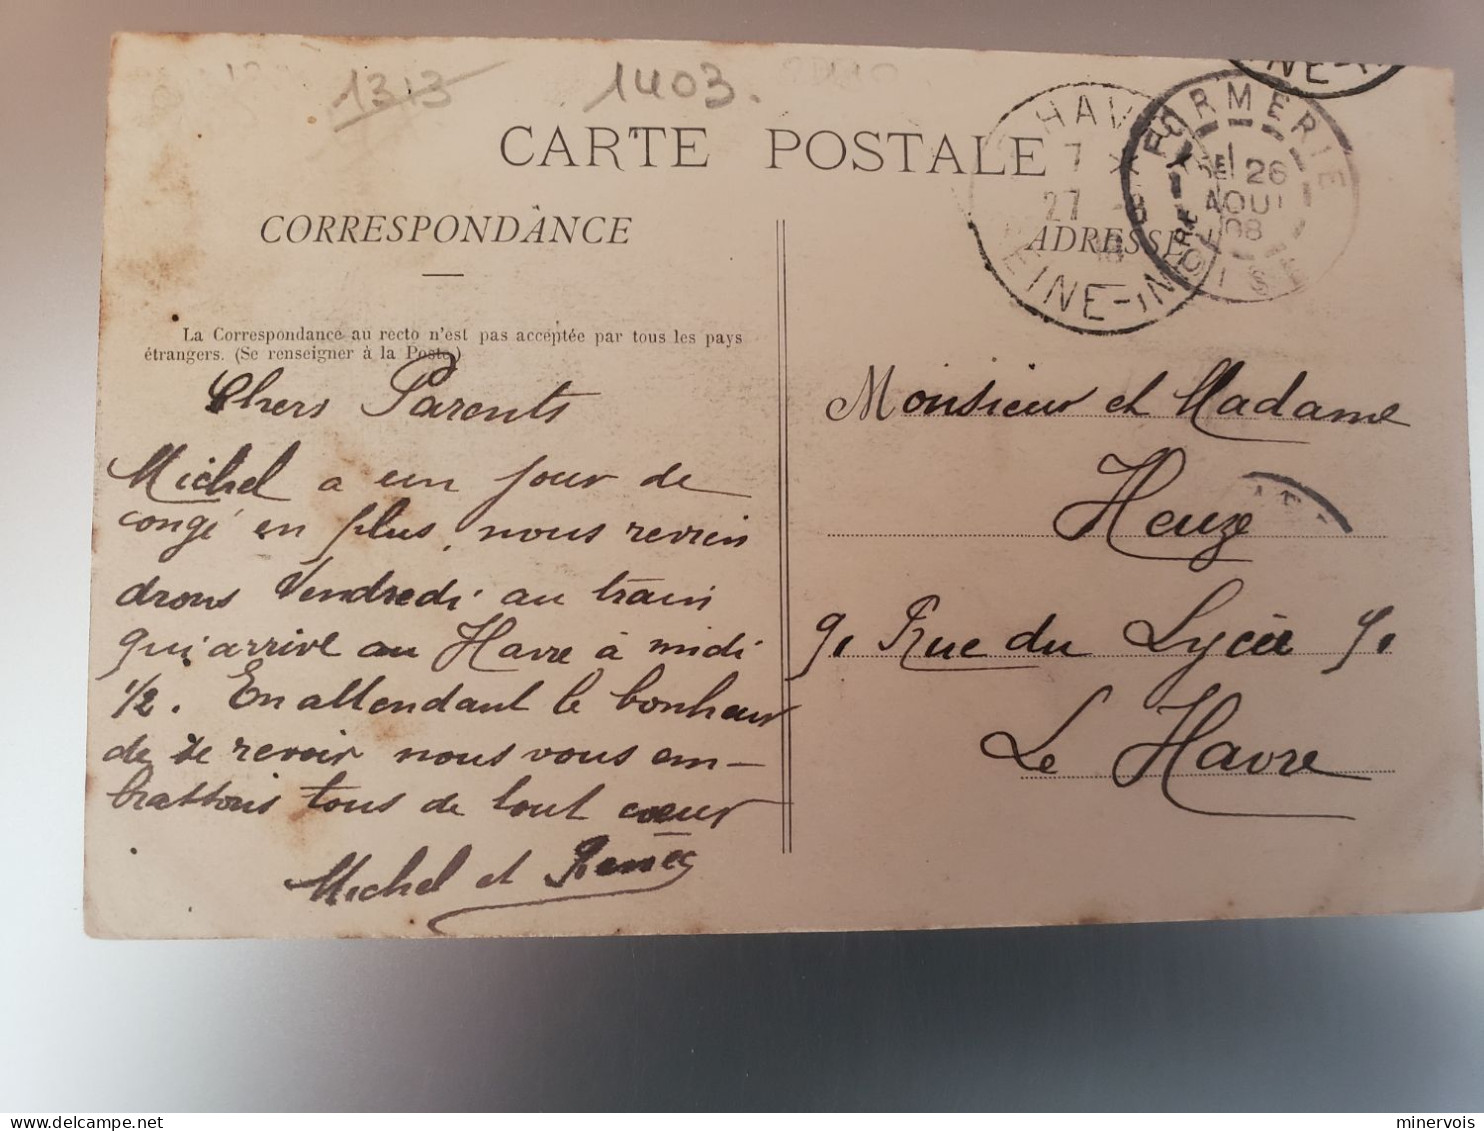 1313
1403.
CARTE POSTALE
CORRESPONDANCE
La Correspondance au recto n'est pas acceptée par tous les pays
étrangers. (Se renseigner à la Poste.)
Chers Parents
Michel a un jour de
congé en plus, nous revien
drons Vendredi au train
qui arrive au Havre à midi
1/2. En attendant le bonheur
de te revoir nous vous em-
brassons tous de tout cœur
Michel et Renée
HAVRE
7
27 -8
SEINE-INFRE
FORMERIE
26
AOUT
08
OISE
NE-I
ADRESSE
Monsieur et Madame
Heuzé
9, Rue du Lycée 9,
Le Havre
minervois